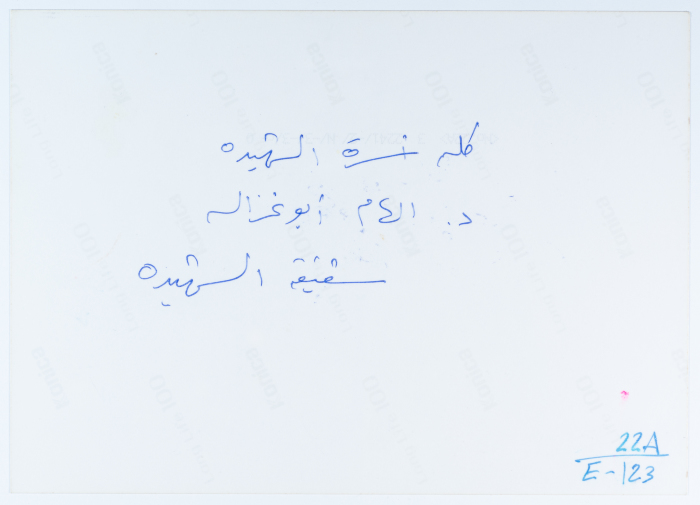 كلمة أسرة الشهيدة
د. الهام أبو غزاله
شقيقة الشهيدة
22A
E-123